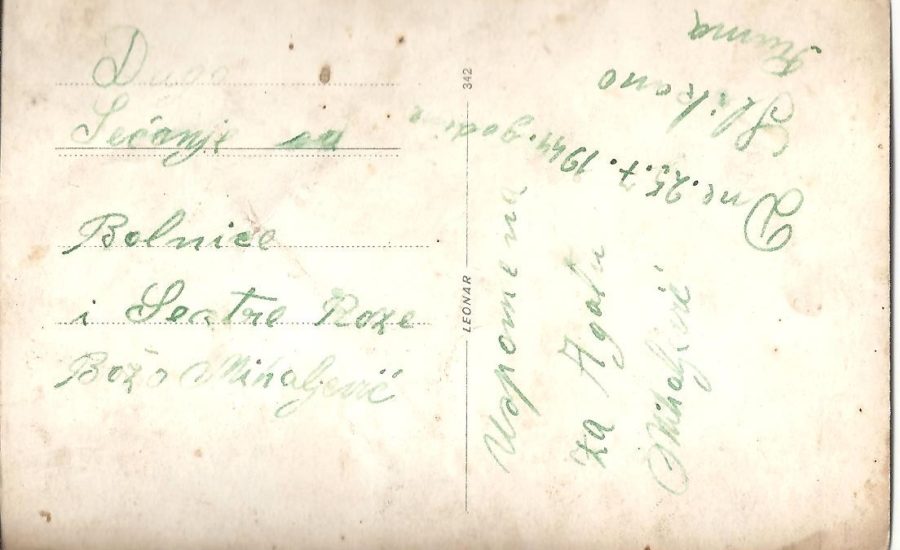 Dugo
Sećanje od
Bolnice
i Sestre Roze
Božo Mihaljević
342
LEONAR
Uspomena
za Agatu
Mihaljević
Dne. 25. 7. 1944. godine
Slikano
Ruma